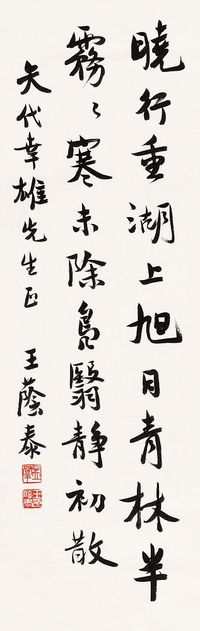 曉行重湖上旭日青林半
霧〻寒未除鳧翳靜初散
矢代幸雄先生正
王蔭泰